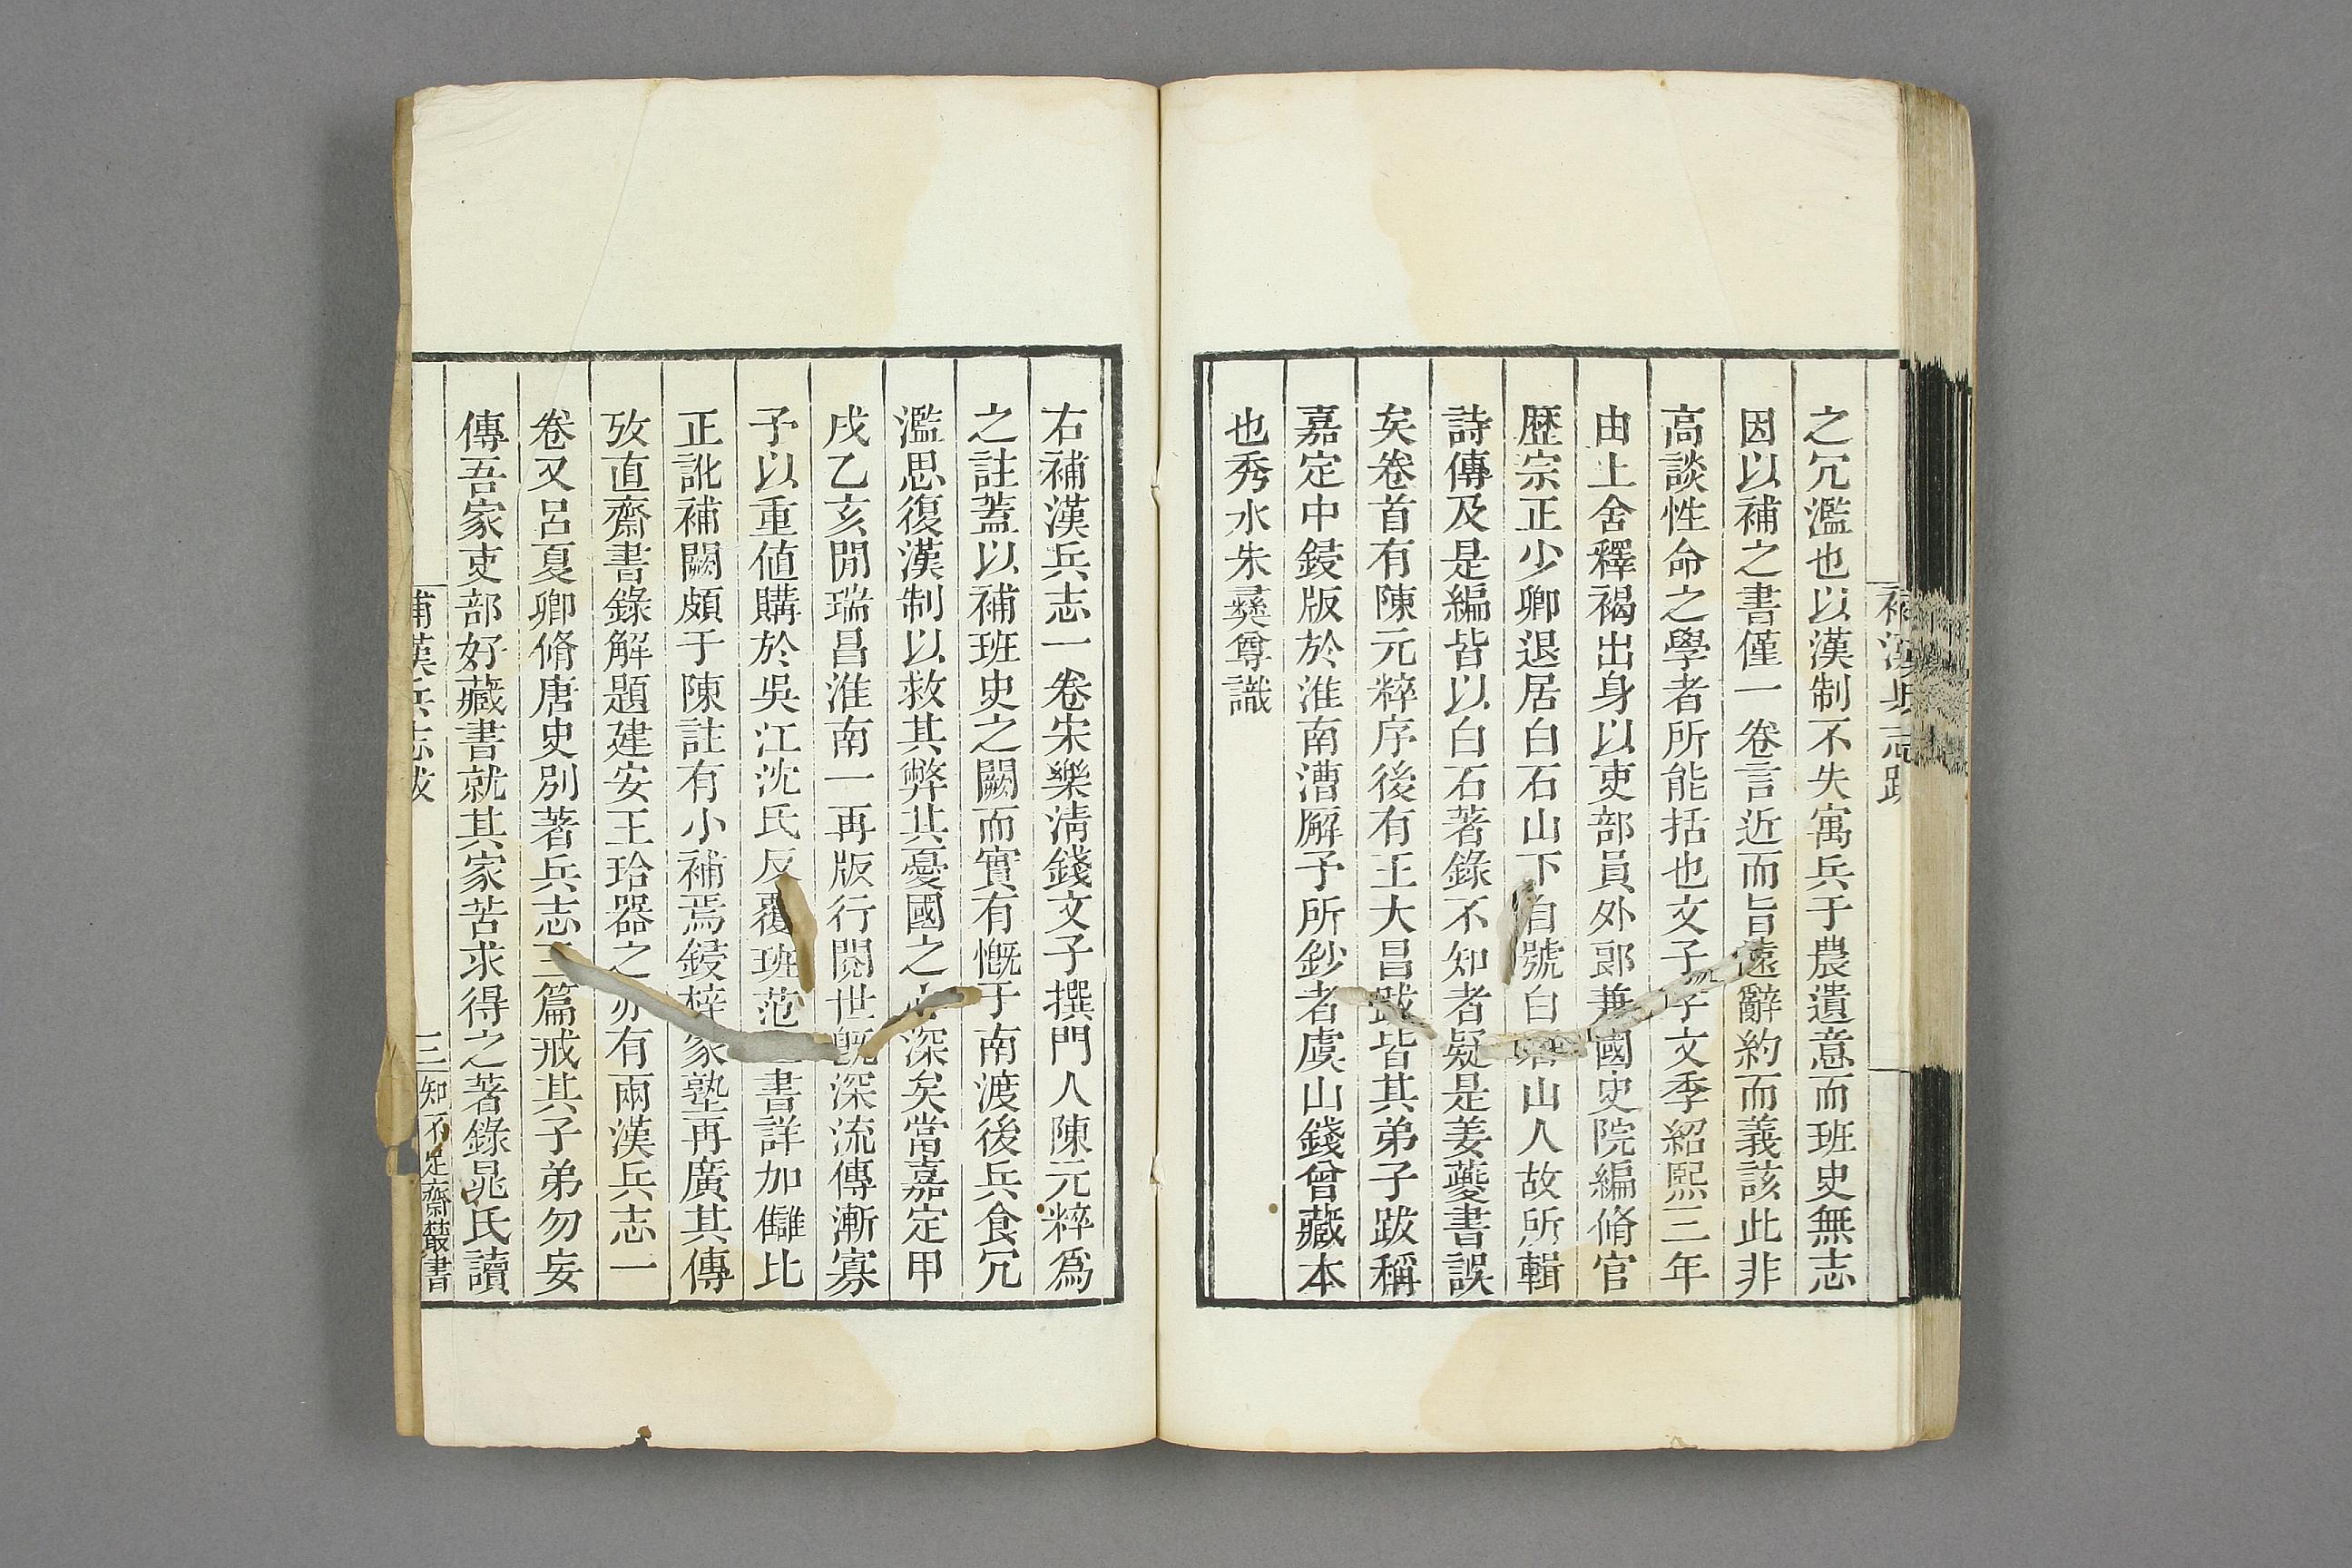 補漢兵志跋
之冗濫也以漢制不失寓兵于農遺意而班史無志
因以補之書僅一卷言近而旨遠辭約而義該此非
高談性命之學者所能括也文子字文季紹熙三年
由上舍釋褐出身以吏部員外郎兼國史院編脩官
歷宗正少卿退居白石山下自號白石山人故所輯
詩傳及是編皆以白石著錄不知者疑是姜夔書誤
矣卷首有陳元粹序後有王大昌跋皆其弟子跋稱
嘉定中鋟版於淮南漕廨予所鈔者虞山錢曾藏本
也秀水朱彞尊識
右補漢兵志一卷宋樂清錢文子撰門人陳元粹爲
之註蓋以補班史之闕而實有慨于南渡後兵食冗
濫思復漢制以救其弊其憂國之心深矣當嘉定甲
戌乙亥閒瑞昌淮南一再版行閱世旣深流傳漸寡
予以重値購於吳江沈氏反覆班范書詳加讎比
正訛補闕頗于陳註有小補焉鋟梓家塾再廣其傳
攷直齋書錄解題建安王玲器之亦有兩漢兵志一
卷又呂夏卿脩唐史別著兵志三篇戒其子弟勿妄
傳吾家吏部好藏書就其家苦求得之著錄晁氏讀
補漢兵志跋
三
知不足齋叢書